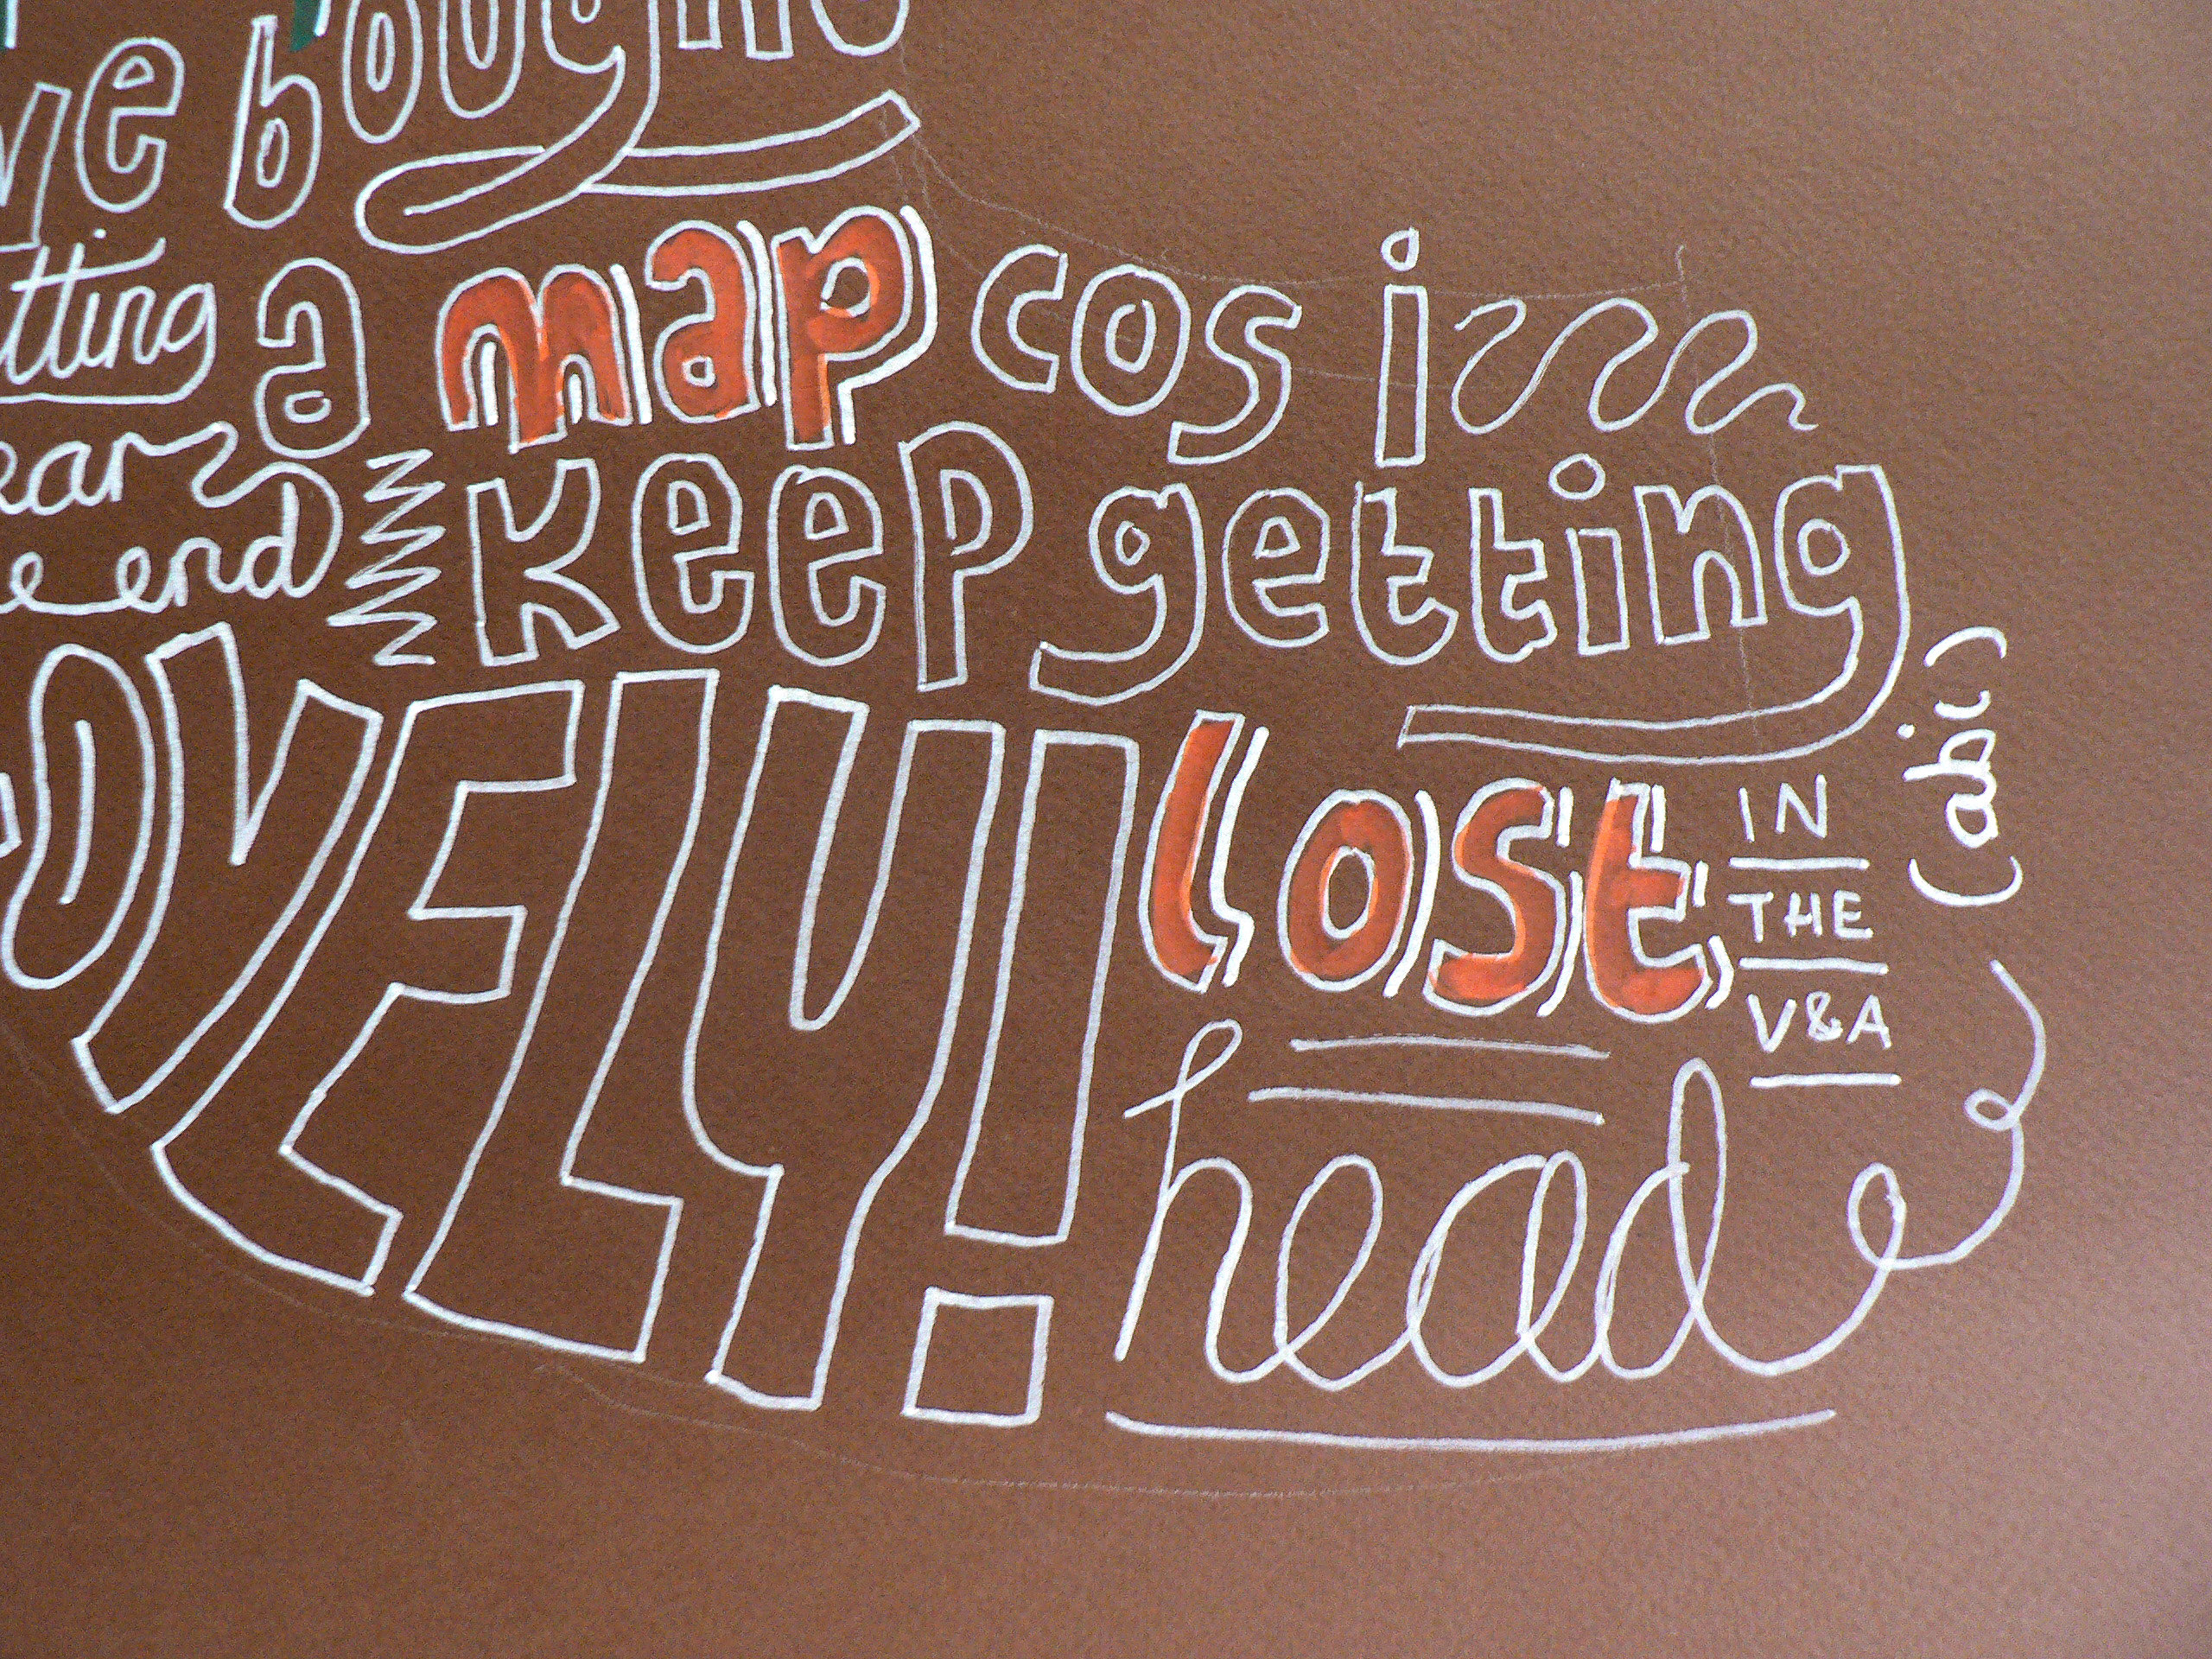 bought
tting a map cos i
keep getting
end
lost IN THE V&A
(abi)
OVELY!
head